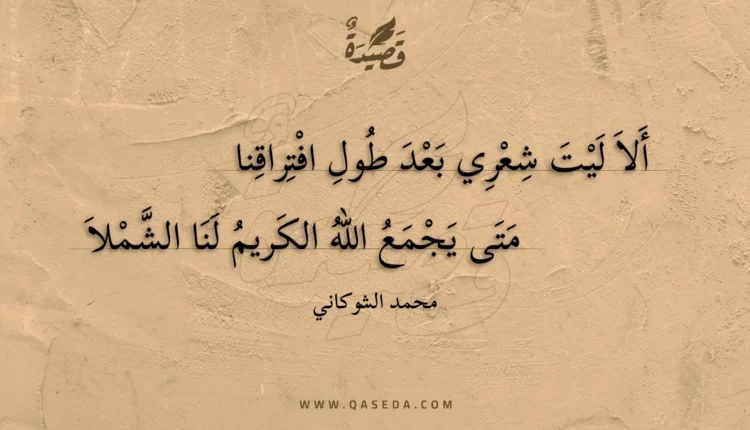 قَصِيْدَةٌ
أَلاَ لَيْتَ شِعْرِي بَعْدَ طُولِ افْتِراقِنا
مَتَى يَجْمَعُ اللهُ الكَريمُ لَنَا الشَّمْلاَ
محمد الشوكاني
WWW.QASEDA.COM